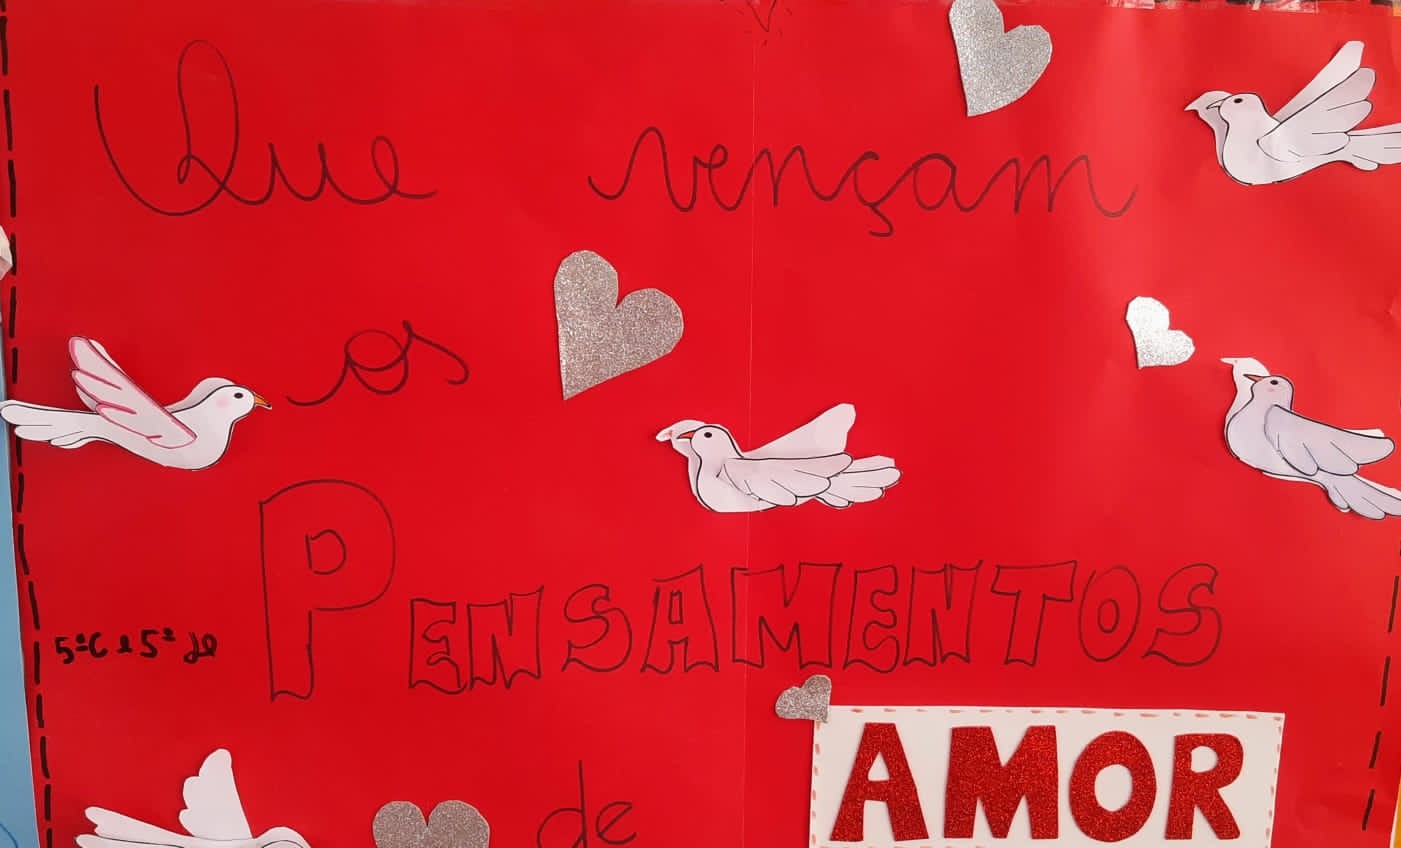 Que vençam
os
PENSAMENTOS
5ºC e 5º
de AMOR